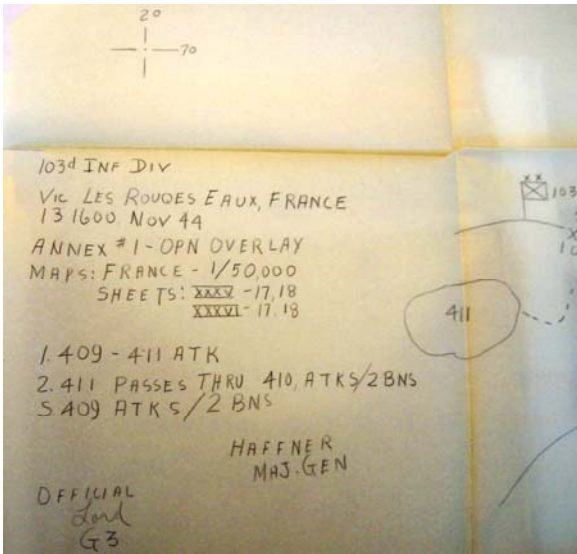 20
70
103d INF DIV
VIC LES ROUGES EAUX, FRANCE
13 1600 NOV 44
ANNEX #1 - OPN OVERLAY
MAPS: FRANCE - 1/50,000
SHEETS: XXXV - 17, 18
XXXVI - 17. 18
1. 409 - 411 ATK
2. 411 PASSES THRU 410, ATKS/2 BNS
3. 409 ATKS/2 BNS
HAFFNER
MAJ. GEN
OFFICIAL
Lord
G3
XX
103
411